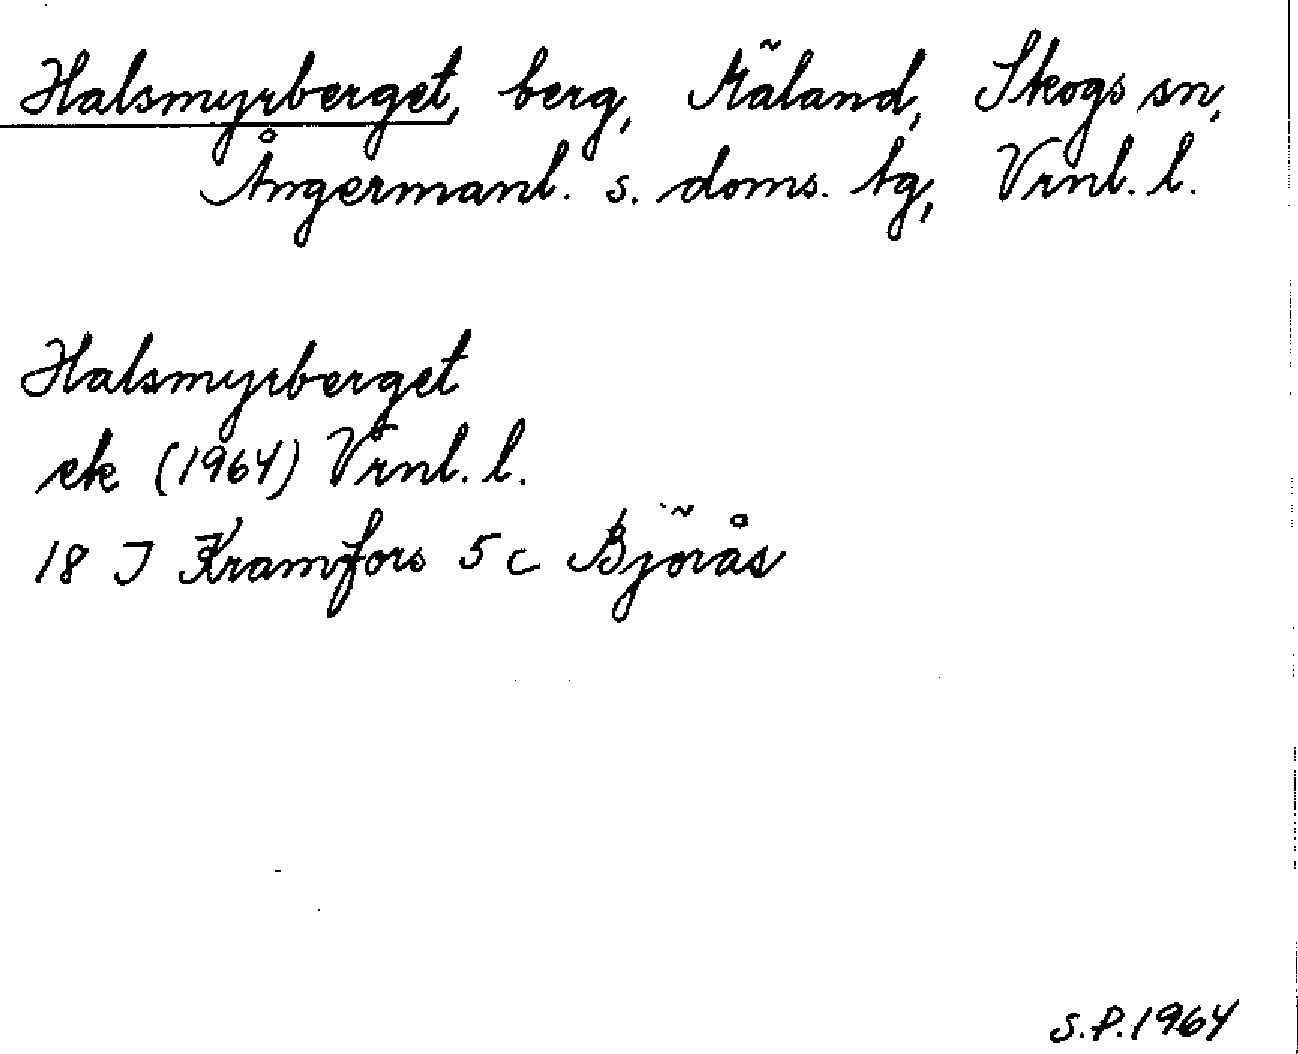 Halsmyrberget, berg, Mäland, Skogs sn,
Ångermanl. s. doms. tg, Vrnl. l.
Halsmyrberget
ek (1964) Vrnl. l.
18 J Kramfors 5 c Björås
S.P.1964